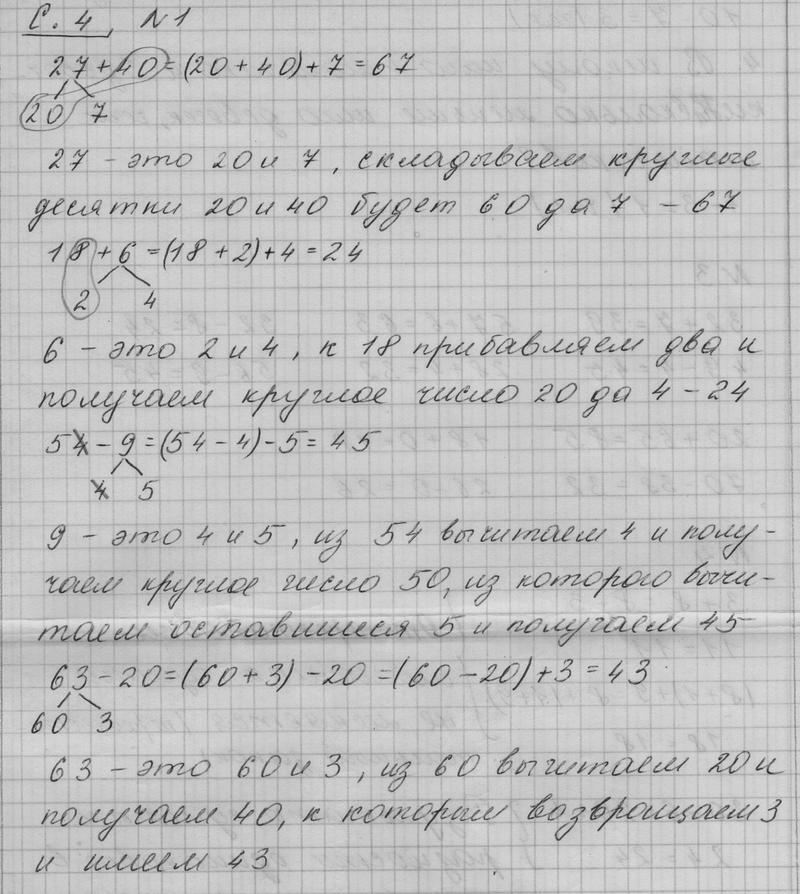 С. 4, №1
27 + 40 = (20 + 40) + 7 = 67
20 7
27 - это 20 и 7, складываем круглые
десятки 20 и 40 будет 60 да 7 - 67
18 + 6 = (18 + 2) + 4 = 24
2 4
6 - это 2 и 4, к 18 прибавляем два и
получаем круглое число 20 да 4 - 24
54 - 9 = (54 - 4) - 5 = 45
4 5
9 - это 4 и 5, из 54 вычитаем 4 и полу-
чаем круглое число 50, из которого вычи-
таем оставшиеся 5 и получаем 45
63 - 20 = (60 + 3) - 20 = (60 - 20) + 3 = 43
60 3
63 - это 60 и 3, из 60 вычитаем 20 и
получаем 40, к которым возвращаем 3
и имеем 43